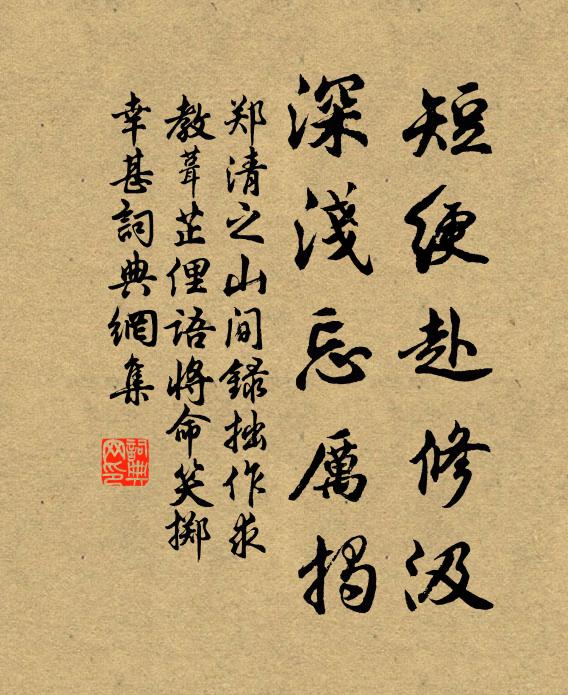 短绠赴修汲
深淺忘厲揭
郑清之山间録拙作求
教葺芷俚語将命笑擲
幸甚詞典網集
詞典网印